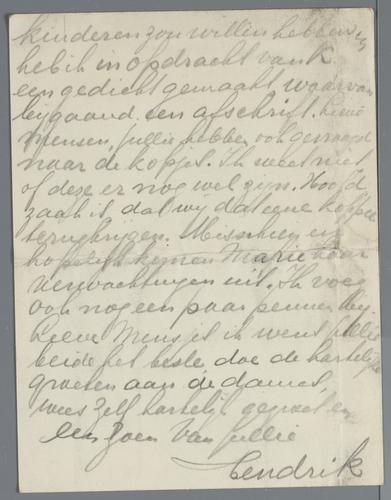 kinderen zou willen hebben en
heb ik in opdracht van K
een gedicht gemaakt waarvan
bijgaand een afschrift. Lieve
mensen, jullie hebben ook gevraagd
naar de kopjes. Ik weet niet
of deze er nog wel zijn. Hoofd
zaak is, dat wij dat eene koppie
terugkrijgen. Misschien en
hopelijk komen Marie haar
verwachtingen uit. Ik voeg
ook nog een paar pennen bij.
Lieve Mensjes ik wens jullie
beide het beste, doe de hartelijke
groeten aan de dames,
wees zelf hartelijk gegroet en
een zoen van jullie
Hendrik